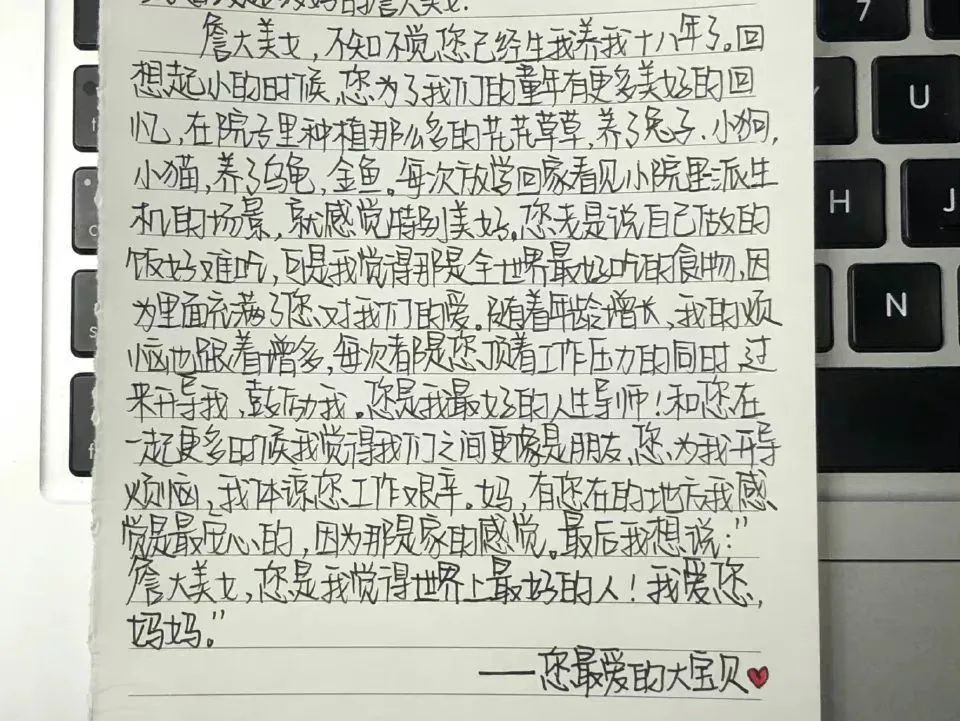 的詹大美女.
詹大美女，不知不觉您已经生我养我十八年了。回
想起小的时候，您为了我们的童年有更多美好的回
忆，在院子里种植那么多的花花草草，养了兔子、小狗，
小猫，养了乌龟，金鱼。每次放学回家看见小院里派生
机的场景，就感觉特别美好。您老是说自己做的
饭好难吃，可是我觉得那是全世界最好吃的食物，因
为里面充满了您对我们的爱。随着年龄增长，我的烦
恼也跟着增多，每次都是您顶着工作压力的同时，过
来开导我，鼓励我。您是我最好的人生导师！和您在
一起更多时候我觉得我们之间更像是朋友，您为我开导
烦恼，我体谅您工作艰辛。妈，有您在的地方我感
觉是最安心的，因为那是家的感觉。最后我想说："
詹大美女，您是我觉得世界上最好的人！我爱您，
妈妈。"
——您最爱的大宝贝
7
U
H
J
N